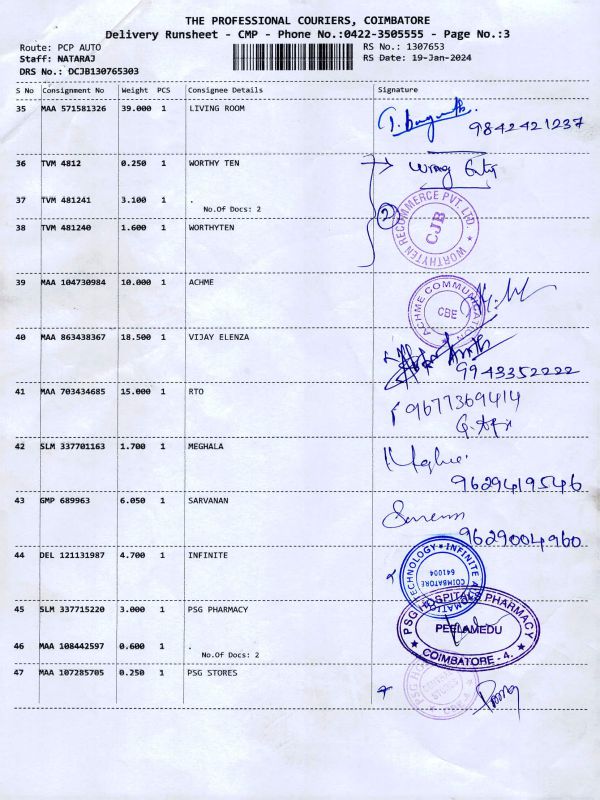 THE PROFESSIONAL COURIERS, COIMBATORE
Delivery Runsheet - CMP - Phone No.:0422-3505555 - Page No.:3
Route: PCP AUTO RS No.: 1307653
Staff: NATARAJ RS Date: 19-Jan-2024
DRS No.: DCJB130765303
S No Consignment No Weight PCS Consignee Details Signature
35 MAA 571581326 39.000 1 LIVING ROOM
9842421237
36 TVM 4812 0.250 1 WORTHY TEN
Wrong
37 TVM 481241 3.100 1 .
No.Of Docs: 2
2
WORTHYTEN RECOMMERCE PVT. LTD.
CJB
38 TVM 481240 1.600 1 WORTHYTEN
39 MAA 104730984 10.000 1 ACHME
ACHME COMMUNICATION
CBE
40 MAA 863438367 18.500 1 VIJAY ELENZA
9943352222
41 MAA 703434685 15.000 1 RTO
9677369414
42 SLM 337701163 1.700 1 MEGHALA
9629419546
43 GMP 689963 6.050 1 SARVANAN
9629004960
44 DEL 121131987 4.700 1 INFINITE
INFINITE
TECHNOLOGY
COIMBATORE
641004
45 SLM 337715220 3.000 1 PSG PHARMACY
PSG HOSPITALS PHARMACY
PEELAMEDU
COIMBATORE - 4.
46 MAA 108442597 0.600 1 .
No.Of Docs: 2
47 MAA 107285705 0.250 1 PSG STORES